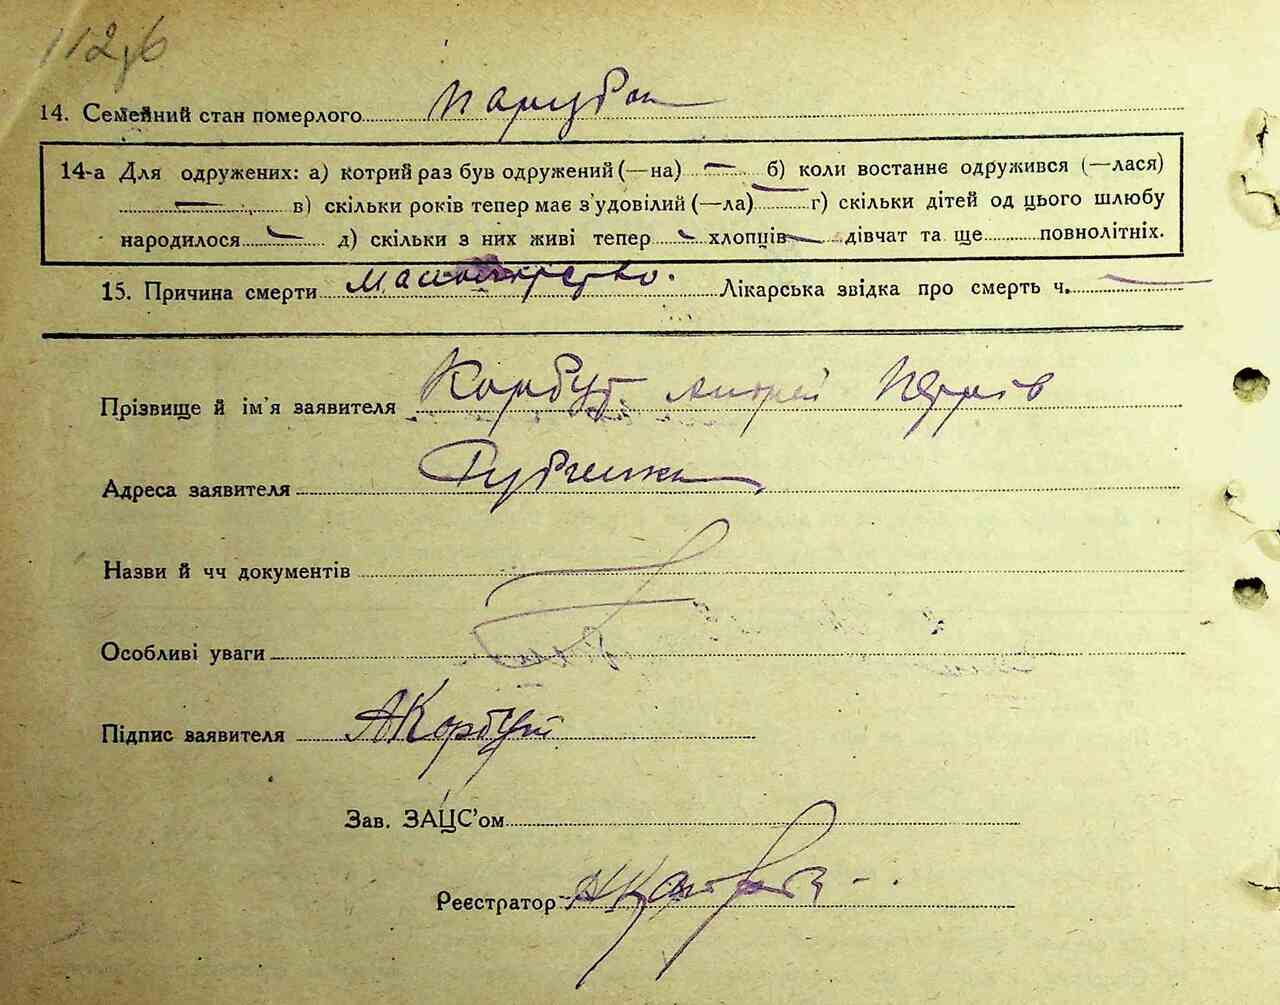 112
14. Семейний стан померлого Парубок
14-а Для одружених: а) котрий раз був одружений (—на) — б) коли востаннє одружився (—лася)
— в) скільки років тепер має з'удовілий (—ла) — г) скільки дітей од цього шлюбу
народилося — д) скільки з них живі тепер — хлопців — дівчат та ще повнолітніх.
15. Причина смерти Лікарська звідка про смерть ч. —
Прізвище й ім'я заявителя Корбут Андрей
Адреса заявителя
Назви й чч документів
Особливі уваги
Підпис заявителя АКорбут
Зав. ЗАЦС'ом
Реєстратор